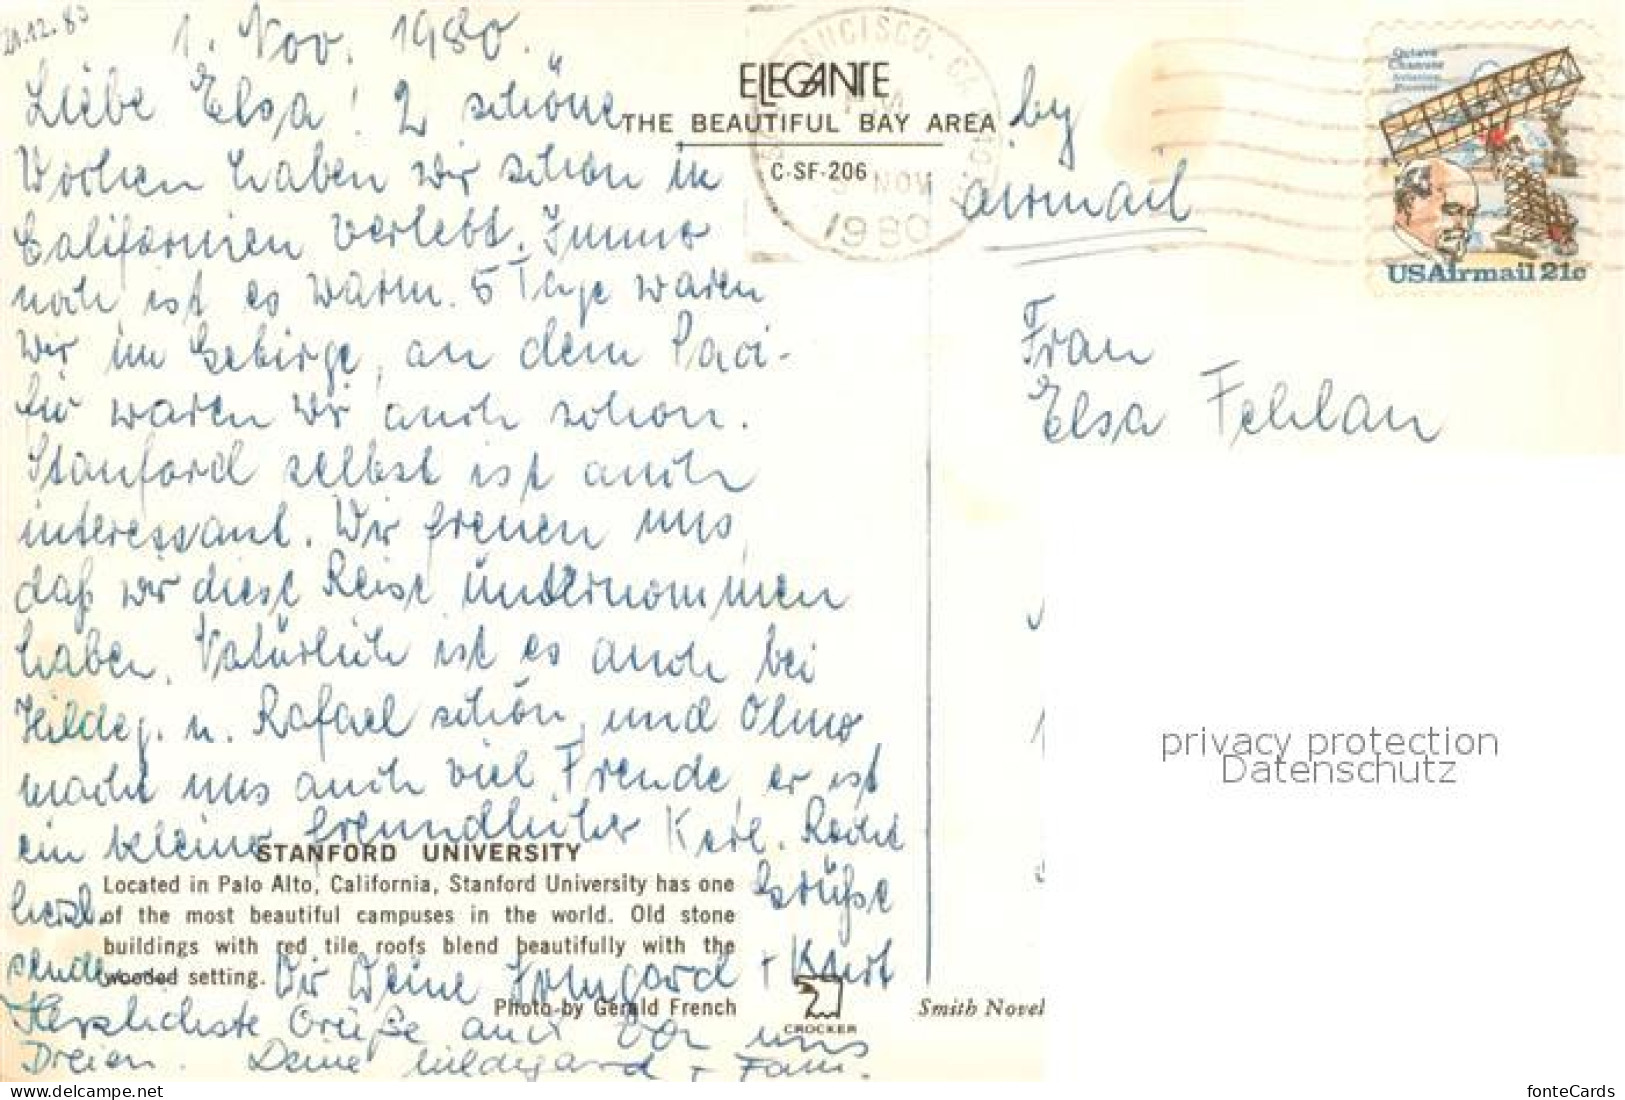 21.12.80
1. Nov. 1980.
Liebe Elsa! 2 schöne
Wochen haben wir schon in
Californien verlebt. Immer
noch ist es warm. 5 Tage waren
wir im Gebirge, an dem Paci-
fic waren wir auch schon.
Stanford selbst ist auch
interessant. Wir freuen uns,
daß wir diese Reise unternommen
haben. Natürlich ist es auch bei
Hildeg. u. Rafael schön, und Olmo
macht uns auch viel Freude, er ist
ein kleiner freundlicher Kerl. Recht
herzl. Grüße
senden Dir Deine Irmgard + Kurt
Herzlichste Grüße auch von uns
Dreien. Deine Hildegard + Fam.
ELEGANTE
THE BEAUTIFUL BAY AREA
C-SF-206
FRANCISCO, CA
NOV
1980
by
airmail
Octave
Chanute
Aviation
Pioneer
USAirmail 21c
Frau
Elsa Fehlau
privacy protection
Datenschutz
STANFORD UNIVERSITY
Located in Palo Alto, California, Stanford University has one
of the most beautiful campuses in the world. Old stone
buildings with red tile roofs blend beautifully with the
wooded setting.
Photo by Gerald French
CROCKER
Smith Novel
fonteCards